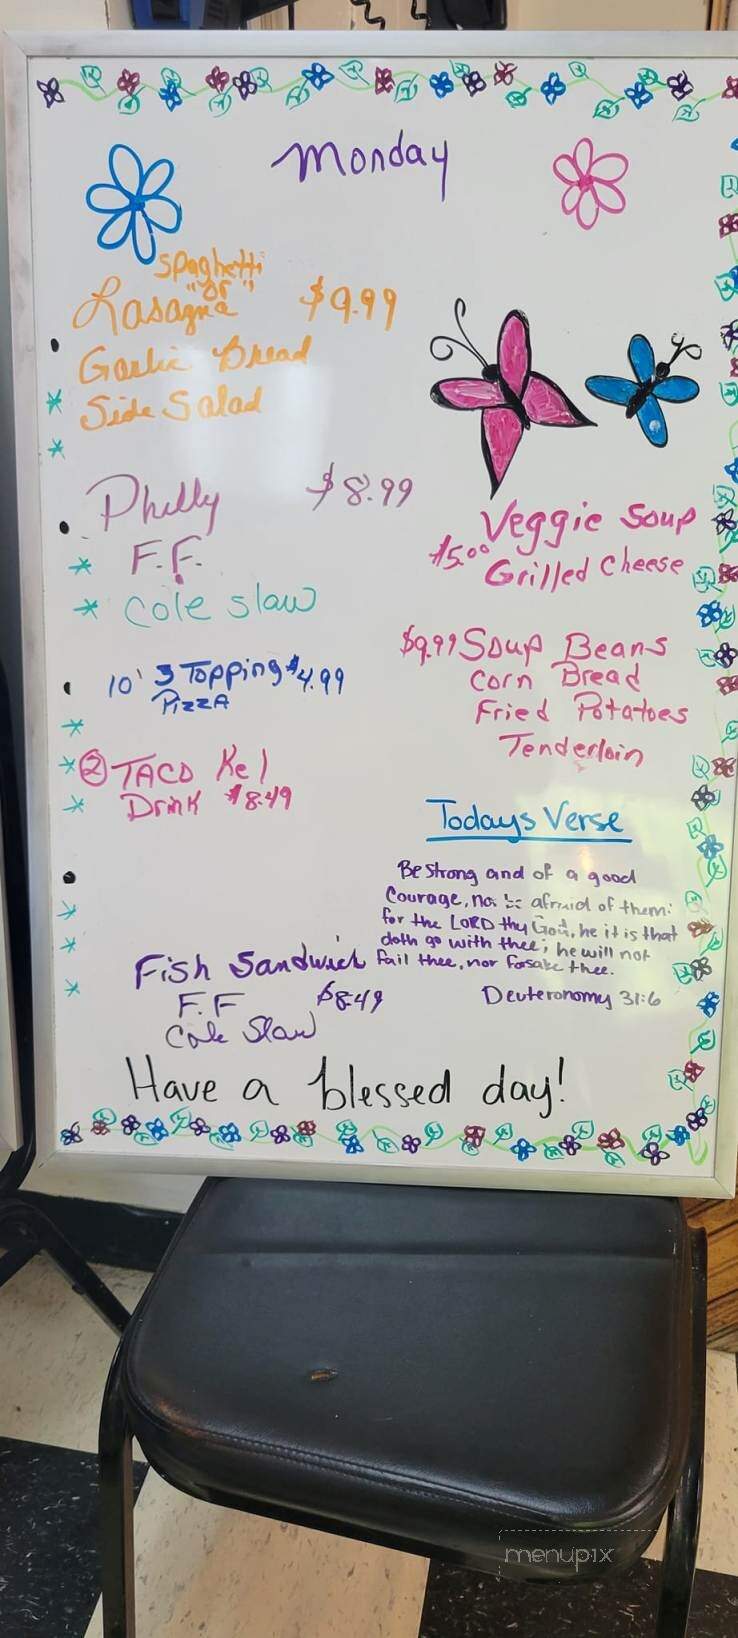 Monday
Spaghetti
"or"
Lasagna $9.99
Garlic Bread
Side Salad
Philly $8.99
F.F.
Cole slaw
10' 3 Topping $4.99
Pizza
2 Taco Kel
Drink $8.49
Fish Sandwich
F.F $8.49
Cole Slaw
Veggie Soup
$5.00 Grilled Cheese
$9.99 Soup Beans
Corn Bread
Fried Potatoes
Tenderloin
Todays Verse
Be strong and of a good
Courage, not be afraid of them:
for the LORD thy God, he it is that
doth go with thee; he will not
fail thee, nor forsake thee.
Deuteronomy 31:6
Have a blessed day!
menupix